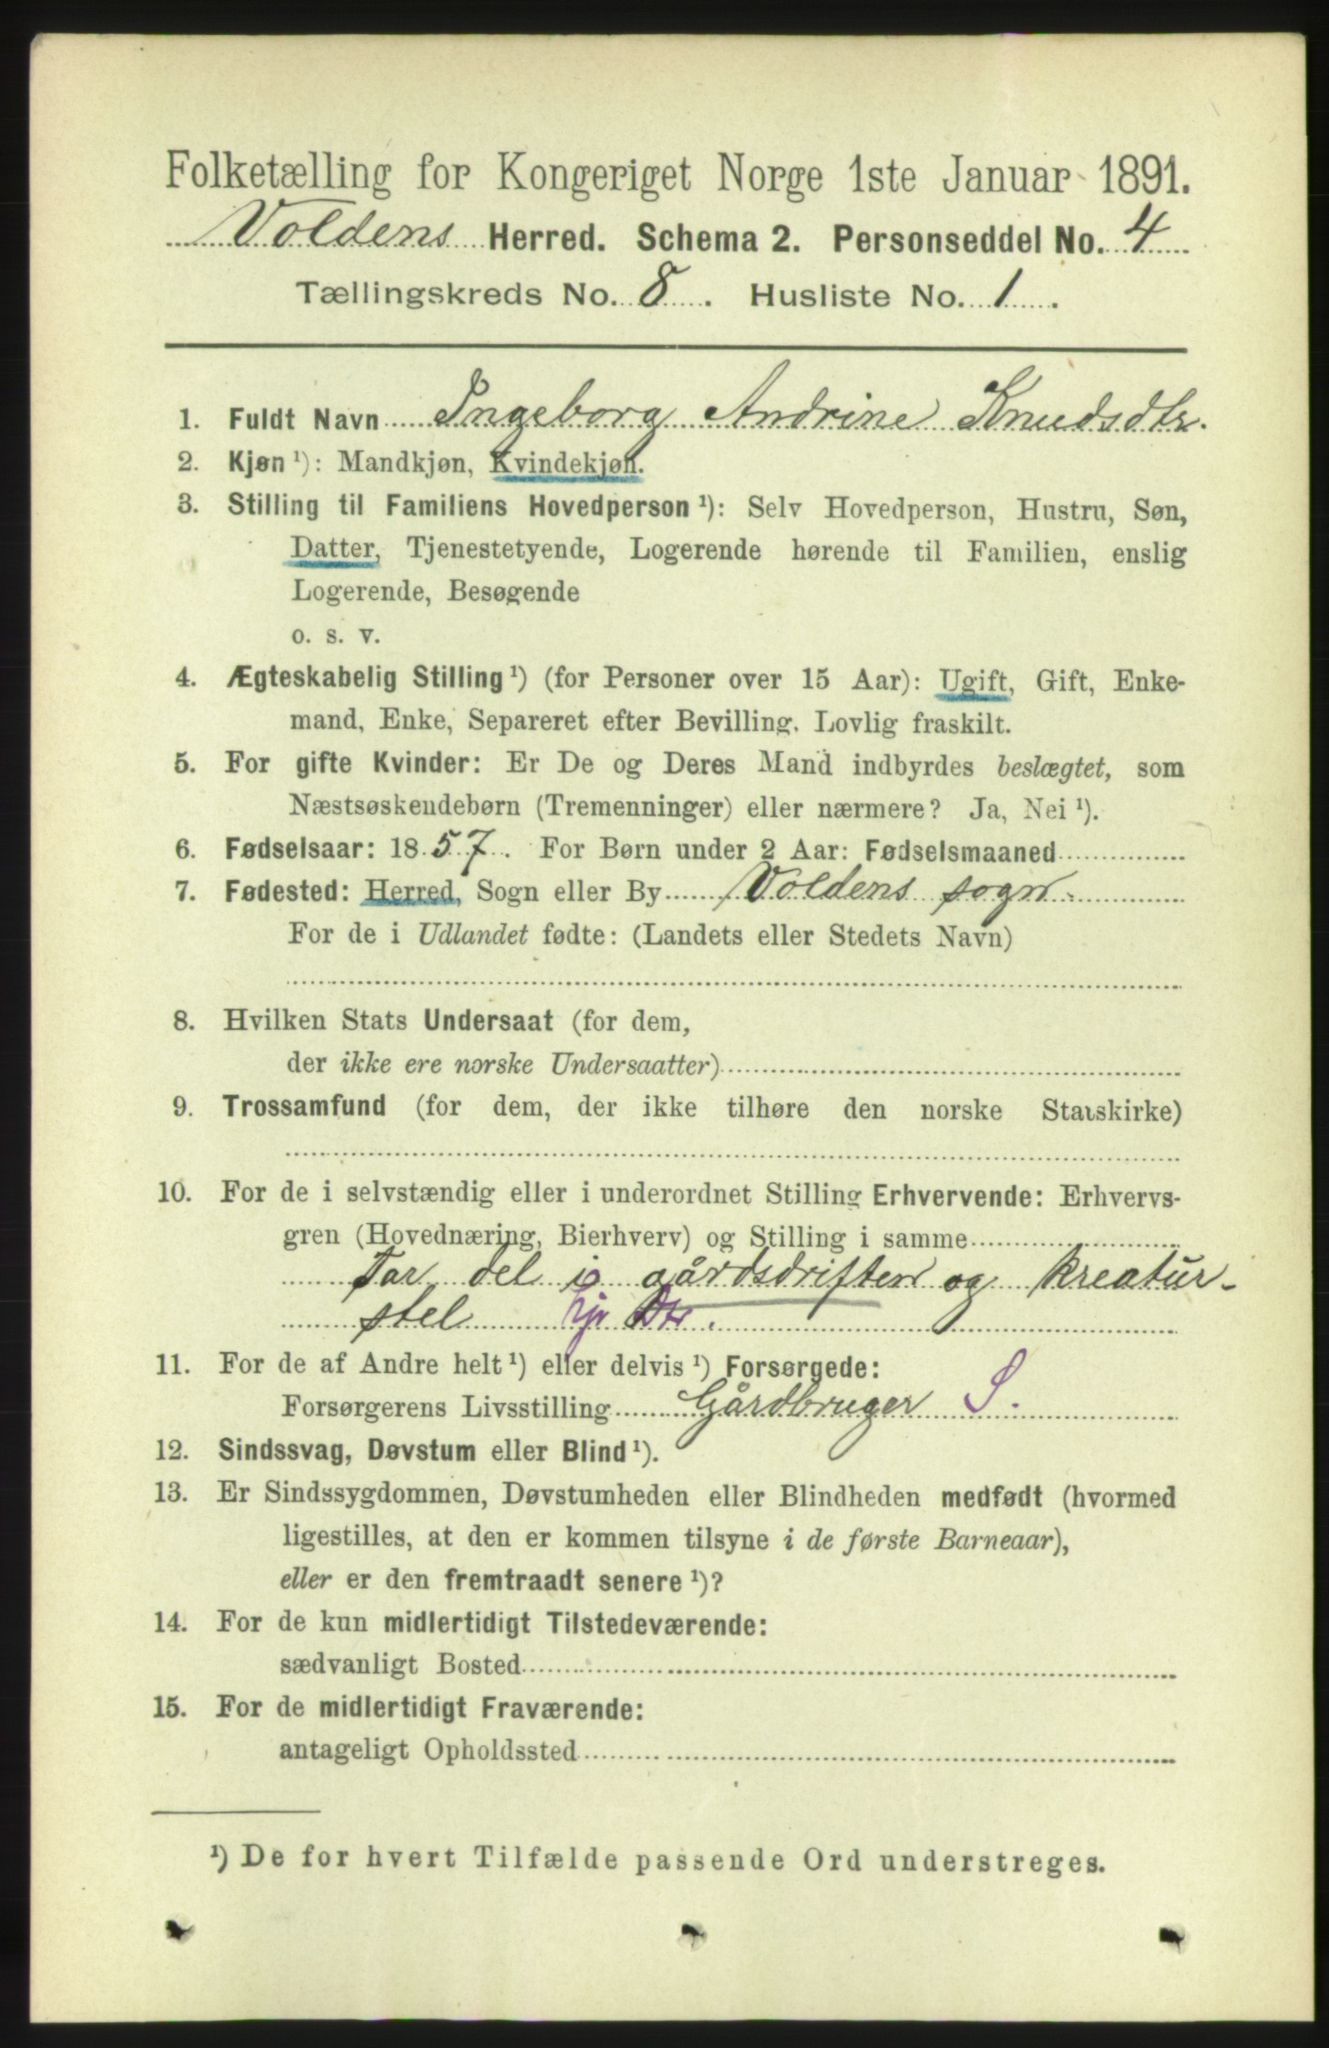 Folketælling for Kongeriget Norge 1ste Januar 1891.
Voldens Herred. Schema 2. Personseddel No. 4
Tællingskreds No. 8. Husliste No. 1.
1. Fuldt Navn Ingeborg Andrine Knudsdtr.
2. Kjøn ¹): Mandkjøn, Kvindekjøn.
3. Stilling til Familiens Hovedperson ¹): Selv Hovedperson, Hustru, Søn,
Datter, Tjenestetyende, Logerende hørende til Familien, enslig
Logerende, Besøgende
o. s. v.
4. Ægteskabelig Stilling ¹) (for Personer over 15 Aar): Ugift, Gift, Enke-
mand, Enke, Separeret efter Bevilling. Lovlig fraskilt.
5. For gifte Kvinder: Er De og Deres Mand indbyrdes beslægtet, som
Næstsøskendebørn (Tremenninger) eller nærmere? Ja, Nei ¹).
6. Fødselsaar: 1857. For Børn under 2 Aar: Fødselsmaaned
7. Fødested: Herred, Sogn eller By Voldens sogn.
For de i Udlandet fødte: (Landets eller Stedets Navn)
8. Hvilken Stats Undersaat (for dem,
der ikke ere norske Undersaatter)
9. Trossamfund (for dem, der ikke tilhøre den norske Statskirke)
10. For de i selvstændig eller i underordnet Stilling Erhvervende: Erhvervs-
gren (Hovednæring, Bierhverv) og Stilling i samme
Tar del i gårdsdriften og kreatur-
stel hjv Dtr.
11. For de af Andre helt ¹) eller delvis ¹) Forsørgede:
Forsørgerens Livsstilling Gårdbruger S.
12. Sindssvag, Døvstum eller Blind ¹).
13. Er Sindssygdommen, Døvstumheden eller Blindheden medfødt (hvormed
ligestilles, at den er kommen tilsyne i de første Barneaar),
eller er den fremtraadt senere ¹)?
14. For de kun midlertidigt Tilstedeværende:
sædvanligt Bosted
15. For de midlertidigt Fraværende:
antageligt Opholdssted
¹) De for hvert Tilfælde passende Ord understreges.